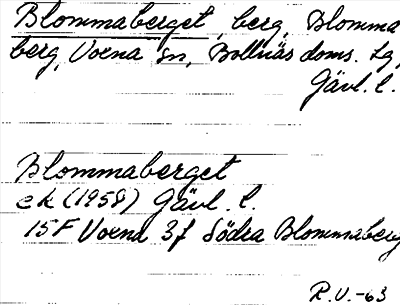 Blommaberget, berg, Blomma
berg, Voxna sn, Bollnäs doms. lg,
Gävl. l.
Blommaberget
ek (1958) Gävl. l.
15F Voxna 3f Södra Blommaberg
R.V. -63